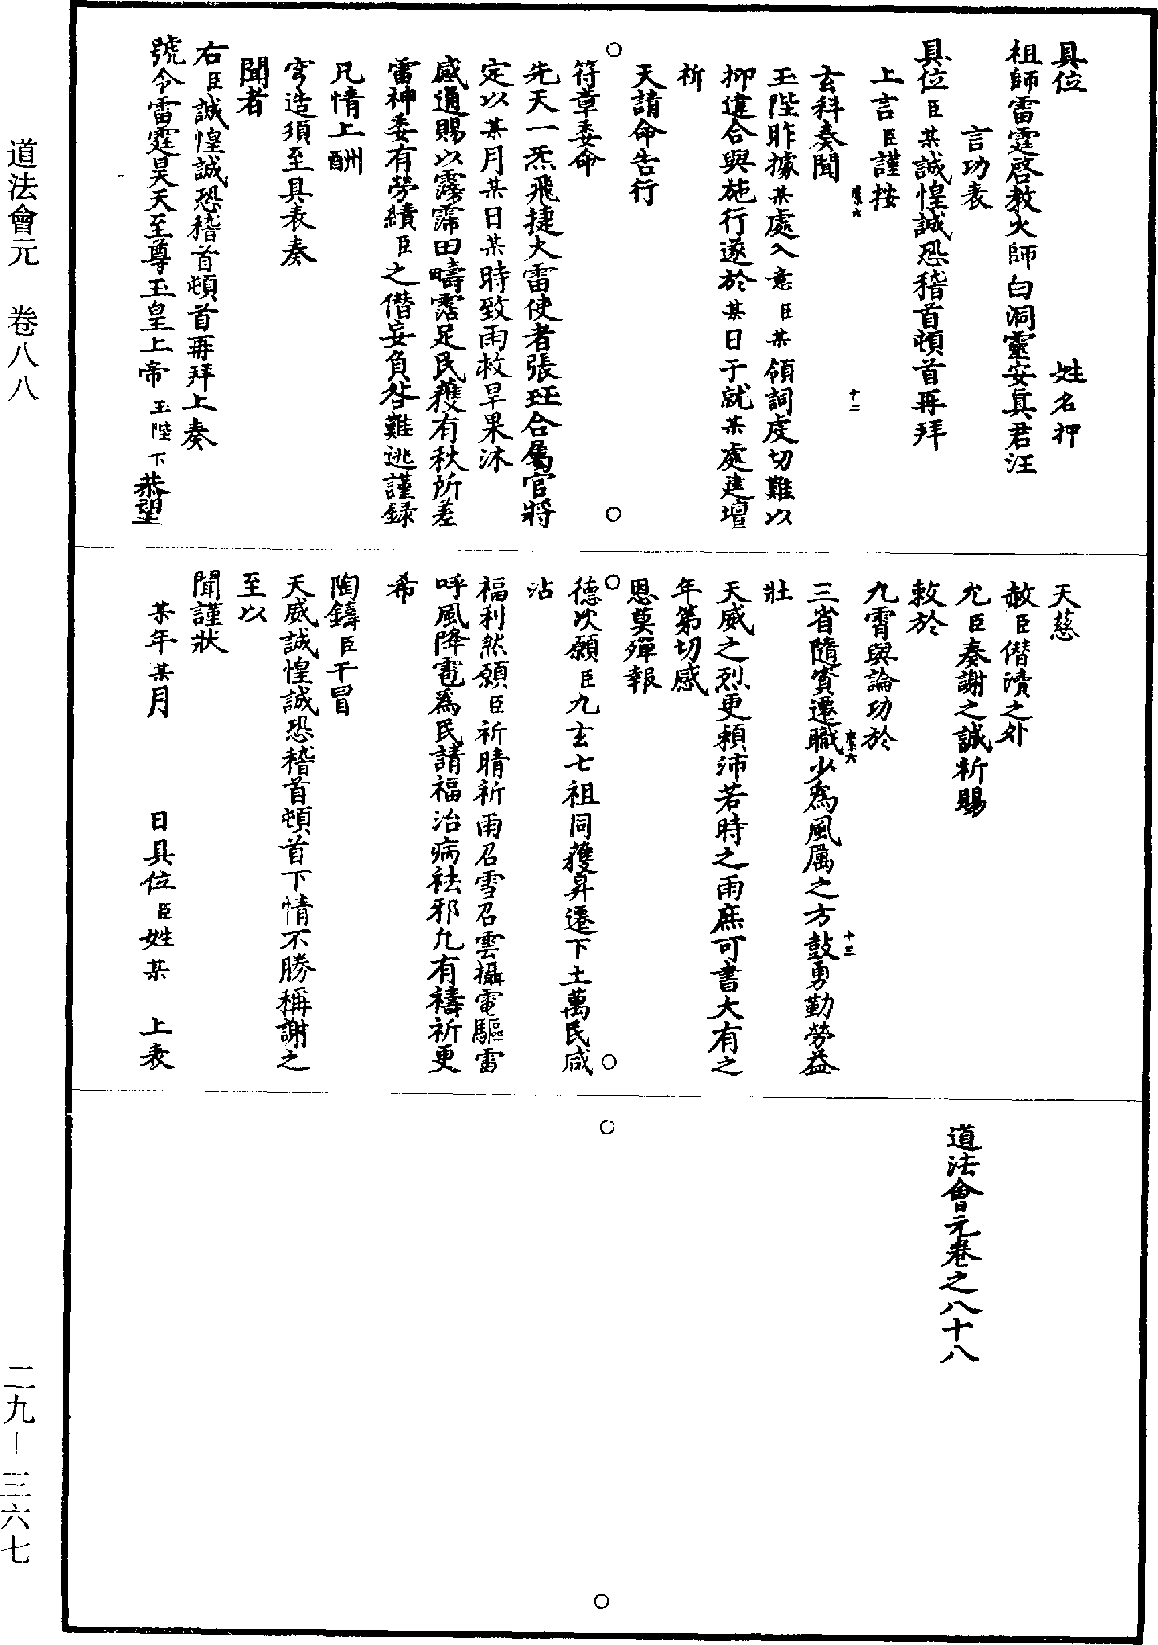 具位　姓名押
祖師雷霆啓教火師白洞靈安真君汪
言功表
具位臣某誠惶誠恐稽首頓首再拜
上言臣謹按
玄科奏聞
玉陛昨據某處入意臣某領詞虔切難以
抑違合與施行遂於某日于就某處建壇
祈
天請命告行
符章委命
先天一炁飛捷大雷使者張珏合屬官將
定以某月某日某時致雨救旱果沐
感通賜以霶霈田疇霑足民獲有秋所差
雷神委有勞績臣之僭妄負咎難逃謹錄
凡情上酬
穹造須至具表奏
聞者
右臣誠惶誠恐稽首頓首再拜上奏
號令雷霆昊天至尊玉皇上帝玉陛下恭望
天慈
赦臣僭瀆之外
允臣奏謝之誠祈賜
敕於
九霄與論功於
三省隨賓遷職少為風厲之方鼓勇勤勞益
壯
天威之烈更頼沛若時之雨庶可書大有之
年第切感
恩莫殫報
德次願臣九玄七祖同獲昇遷下土萬民咸
沾
福利然願臣祈晴祈雨召雪召雲攝電驅雷
呼風降雹為民請福治病祛邪凡有禱祈更
希
陶鑄臣干冒
天威誠惶誠恐稽首頓首下情不勝稱謝之
至以
聞謹狀
某年某月　日具位臣姓某　上表
道法會元卷之八十八
道法會元　卷八八
二九－三六七